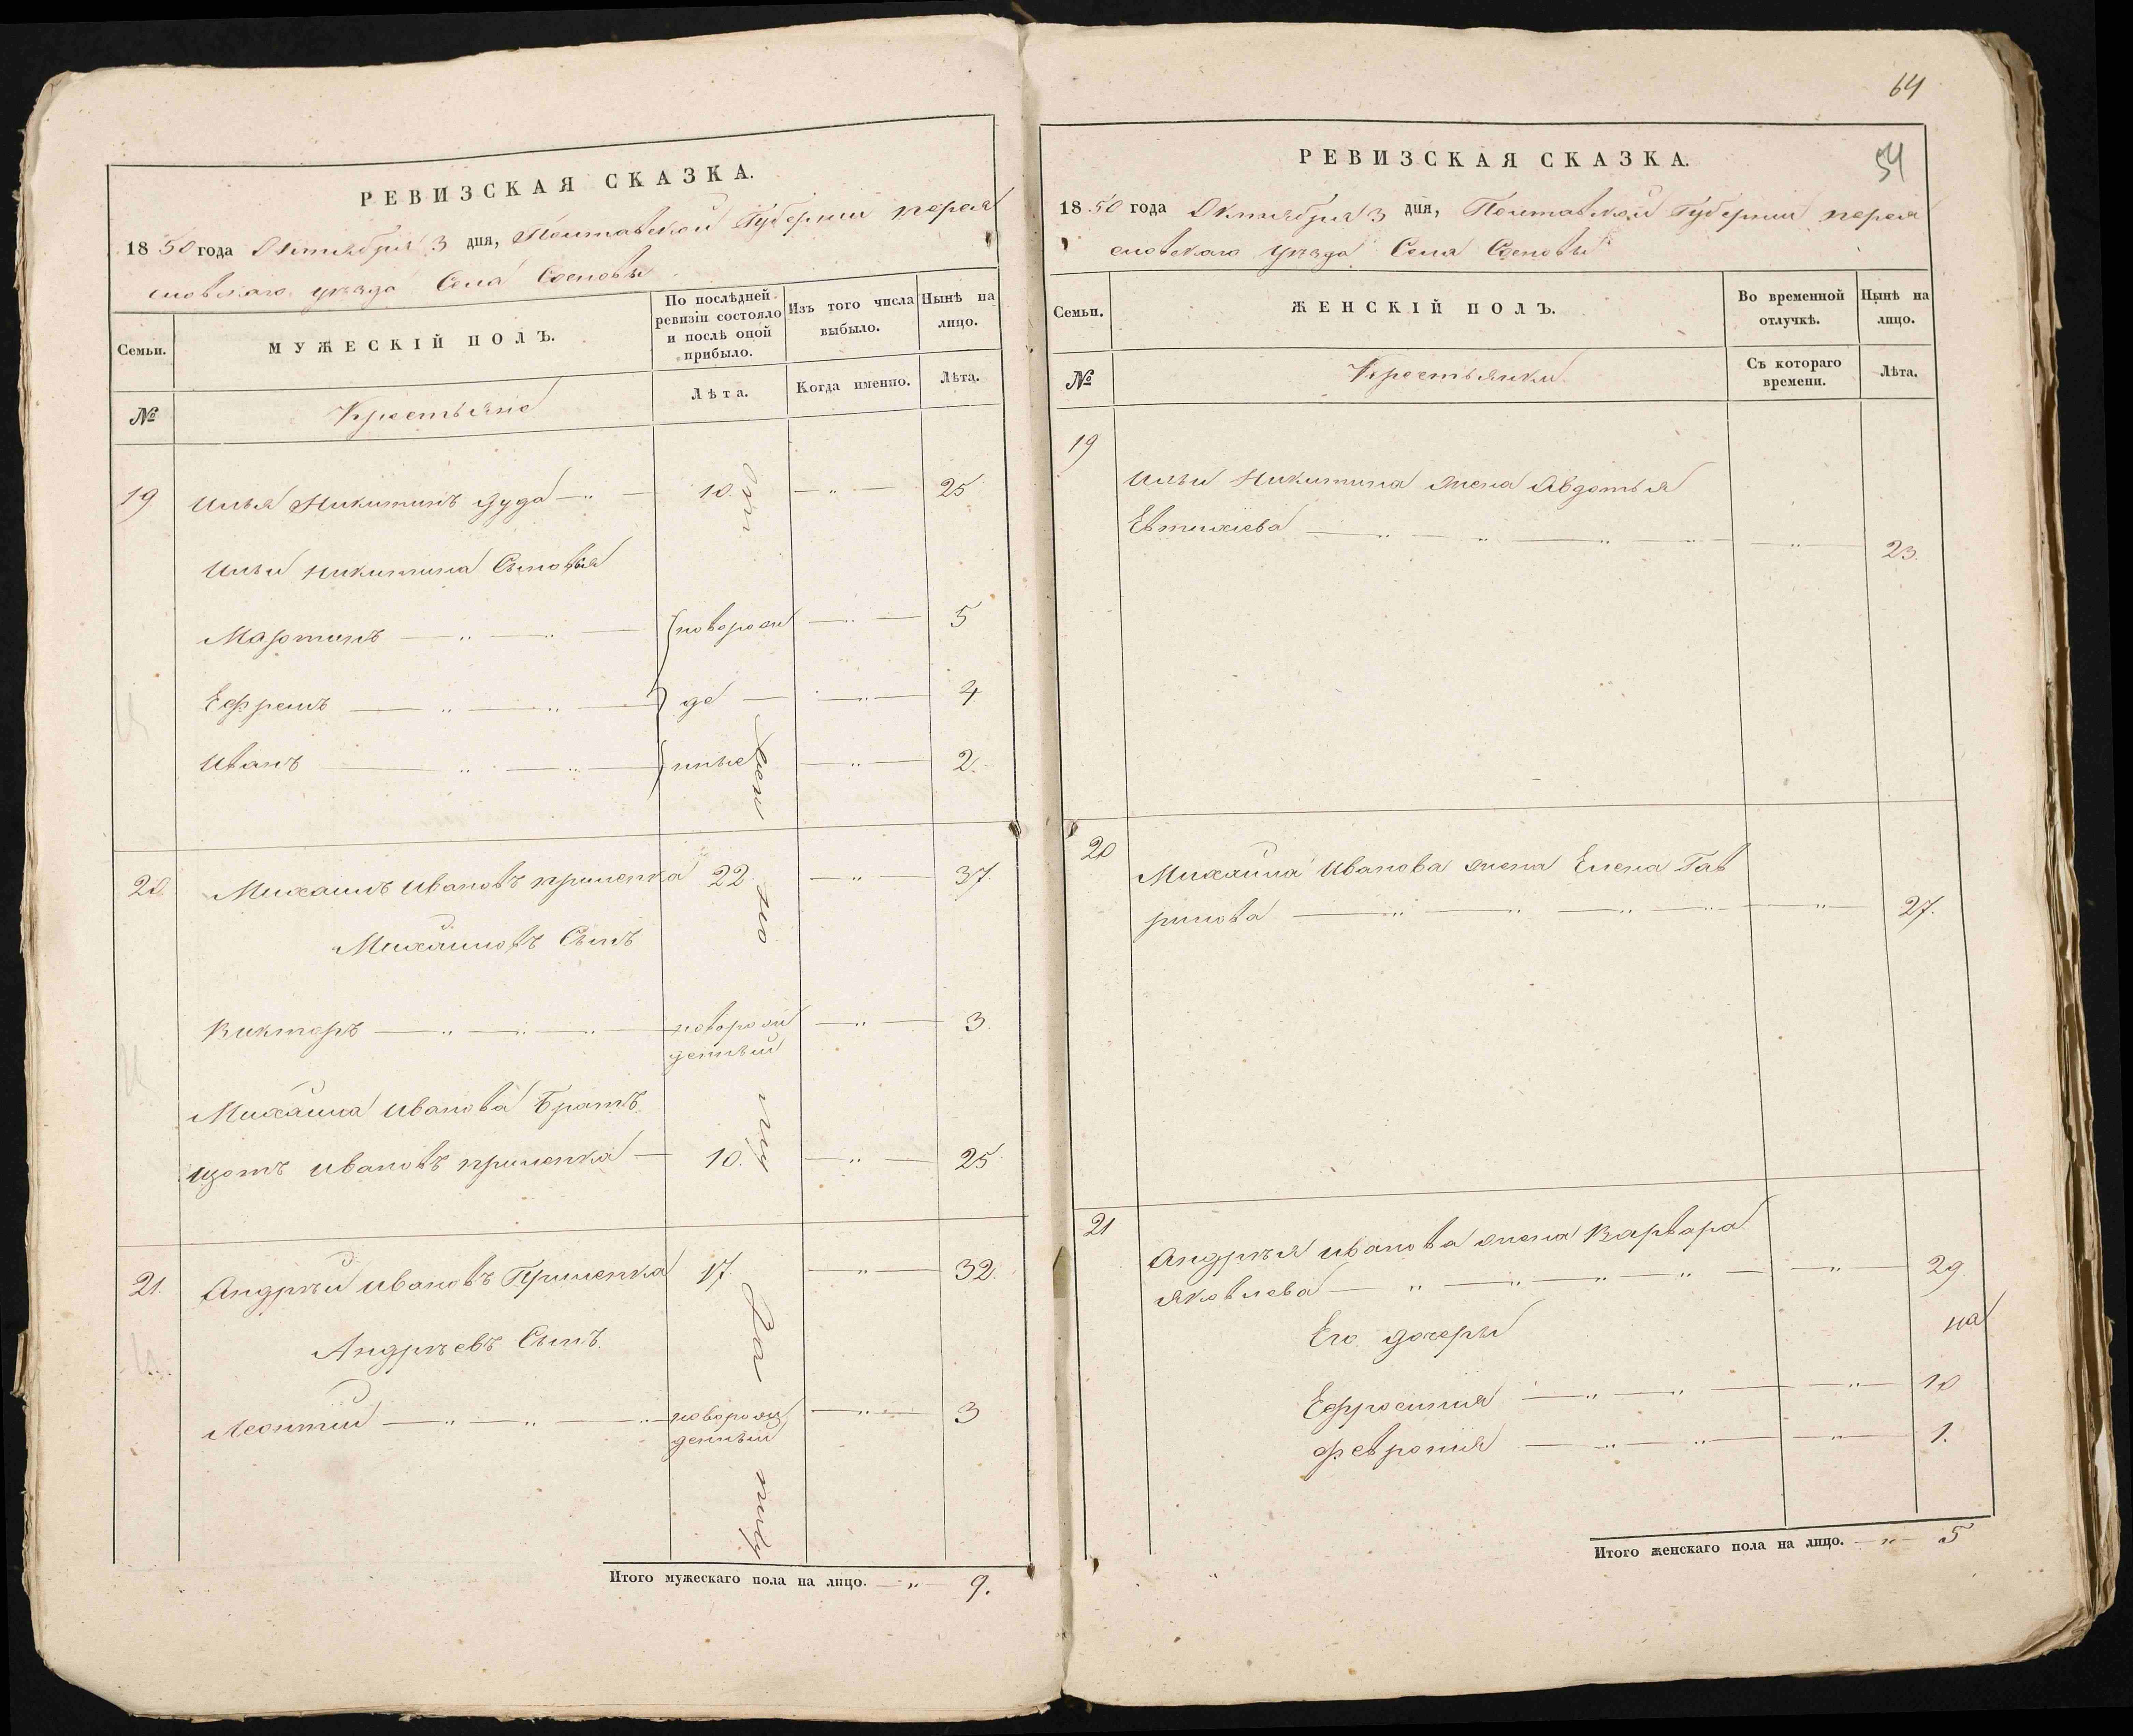 РЕВИЗСКАЯ СКАЗКА.
1850 года Октября 3 дня, Полтавской Губернии перея
словскаго уезда Села Сосновы
Семьи.
МУЖЕСКІЙ ПОЛЪ.
По послѣдней ревизіи состояло и послѣ оной прибыло.
Изъ того числа выбыло.
Нынѣ на лицо.
№
Крестьяне
Лѣта.
Когда именно.
Лѣта.
19 Илья Никитинъ Дуда 10. 25
Ильи Никитина Сыновья
Мартинъ новорож 5
Ефремъ де 4
Иванъ нные 2.
20 Михаилъ Ивановъ прилепка 22. 37.
Михайловъ Сынъ
Викторъ новорож 3.
денный
Михайла Иванова Братъ
Изотъ Ивановъ прилепка 10. 25
21. Андрѣй Ивановъ Прилепка 17. 32.
Андрѣевъ Сынъ.
Леонтій новорож 3
денный
Итого мужескаго пола на лицо. 9.
64
54
РЕВИЗСКАЯ СКАЗКА.
1850 года Октября 3 дня, Полтавской Губернии перея
словскаго уѣзда Села Сосновы
Семьи.
ЖЕНСКІЙ ПОЛЪ.
Во временной отлучкѣ.
Нынѣ на лицо.
№
Крестьянки
Съ котораго времени.
Лѣта.
19
Ильи Никитина жена Авдотья
Евтихіева 23.
20
Михайла Иванова жена Елена Гав
рилова 27.
21
Андрѣя Иванова жена Варвара
Яковлева 29.
Его дочеры
Ефросиния 10
Феврония 1.
Итого женскаго пола на лицо. 5